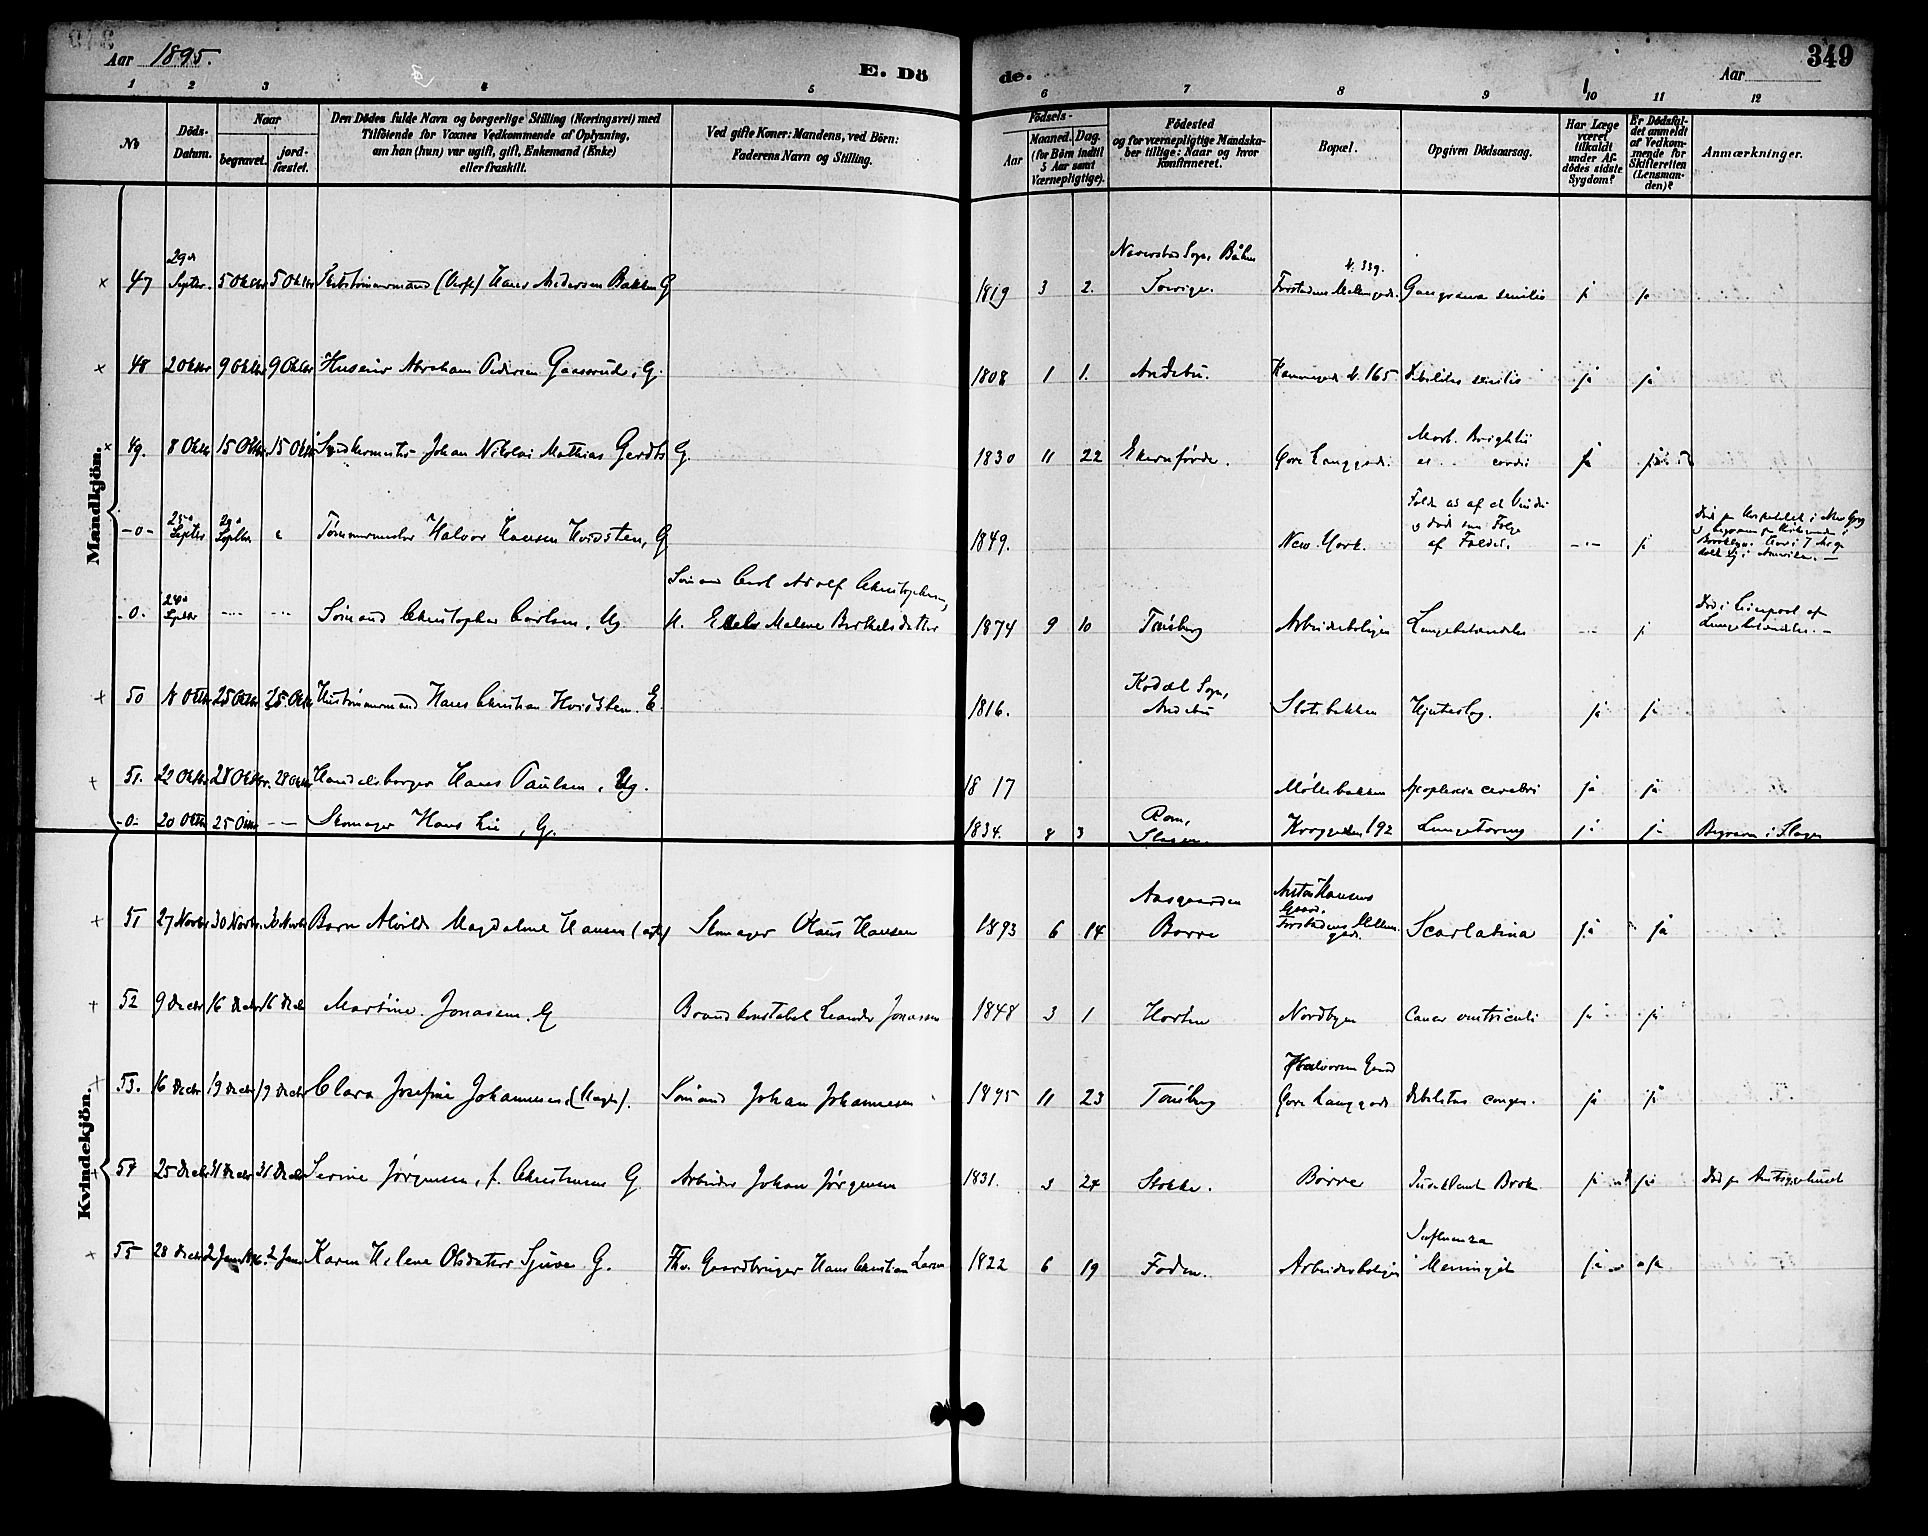 Aar 1895.
E. Dö
de.
Aar
349
1 2 3 4 5 6 7 8 9 10 11 12
No
Döds-
Datum.
Naar
begravet.
jord-
fæstet.
Den Dödes fulde Navn og borgerlige Stilling (Næringsvei) med
Tilföiende for Voxnes Vedkommende af Oplysning,
om han (hun) var ugift, gift, Enkemand (Enke)
eller fraskilt.
Ved gifte Koner: Mandens, ved Börn:
Faderens Navn og Stilling.
Födsels-
Aar
Maaned. Dag.
(for Börn indtil
5 Aar samt
Værnepligtige).
Födested
og for værnepligtige Mandska-
ber tillige: Naar og hvor
konfirmeret.
Bopæl.
Opgiven Dödsaarsag.
Har Læge
været
tilkaldt
under Af-
dödes sidste
Sygdom?
Er Dödsfal-
det anmeldt
af Vedkom-
mende for
Skifteretten
(Lensman-
den)?
Anmærkninger.
Mandkjön.
47 29de Septbr. 5 Oktbr 5 Oktbr Hans Andersen Bakken G 1819 3 2. Sogn Sverige. N. 339. Gangræna senilis ja ja
48 2 Oktbr 9 Oktbr 9 Oktbr Huseier Abraham Pedersen Gaasrud, G. 1808 1 1. Andebu. N. 165 Debilitas senilis ja ja
49. 8 Oktbr 15 Oktbr 15 Oktbr Johan Nikolai Mathias Gerdts G. 1830 11 22 Ekernförde. Övre Langgade. Morb. Brightii
et cordis ja ja
-0- Septbr 29de Septbr Tømmermester Halvor Hansen Hvidsten, G 1849. New York. Fald ud af et Vindu
og død som Følge
af Faldet. -"- ja Død paa Hospitalet i New York
-0- Septbr -"- -"- Sømand Christopher Carlsen, Ug Sømand Carl Adolf Christophersen,
H. Malene Berthelsdatter 1874 9 10 Tønsberg Arbeiderboligen Lungebetændelse -"- ja Død i Liverpool af
Lungebetændelse. -
50 25 Oktbr 25 Oktbr Hans Christian Hvidsten. E. 1816. Kodal Sogn,
Andebu Slotsbakken Hjerteslag. ja ja
51. 22 Oktbr 28 Oktbr. 28 Oktbr Handelsborger Hans Paulsen, Ug. 1817 Møllebakken Apoplexia cerebri ja ja
-0- 20 Oktbr 25 Oktbr -- Skomager Hans Lie, G. 1834. 8 3 Rom,
Slagen. 192 Lungetæring ja ja Begraven i Slagen
Kvindekjön.
51 27 Novbr 30 Novbr. 30 Novbr Barn Alvilde Magdalene Hansen Skomager Hans Hansen 1893 6 14 Aasgaarden
Borre Hansens
Gaard. Scarlatina ja ja
52 9 Decbr 16 Decbr 16 Decbr Martine Jonasen. G Brandkonstabel Leander Jonassen 1848 3 1 Horten Nordbyen Cancer ventriculi ja ja
53. 16 Decbr 19 Decbr 19 Decbr Clara Josefine Johannesen Sømand Johan Johannesen 1895 11 23 Tønsberg Halvorsens Gaard
Övre Langgade Debilitas congen. ja ja
54 25 Decbr 31 Decbr 31 Decbr Serine Jørgensen, f. Christensen G Arbeider Johan Jørgensen 1831. 3 24 Stokke. Borre Indeklemt Brok ja ja Død paa Amtssygehuset
55 28 Decbr 2 Jan 1896. 2 Jan Karen Helene Olsdatter Sjuve. G. Fhv. Gaardbruger Hans Christian Larsen 1822 6 19 Foden. Arbeiderboligen Influenza
Meningit ja ja